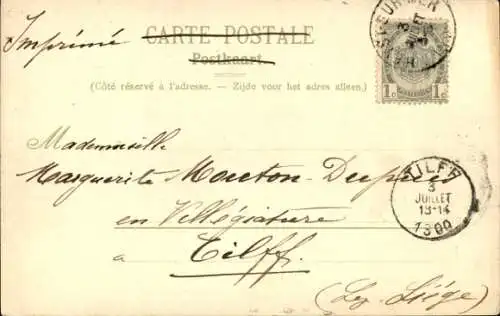 Imprimé
CARTE POSTALE
Postkaart.
(Côté réservé à l'adresse. - Zijde voor het adres alleen.)
1c 1c
Mademoiselle
Marguerite Mouton-Dupuis
en Villégiature
à Tilff.
(Lez-Liége)
TILFF
3
JUILLET
13-14
1900